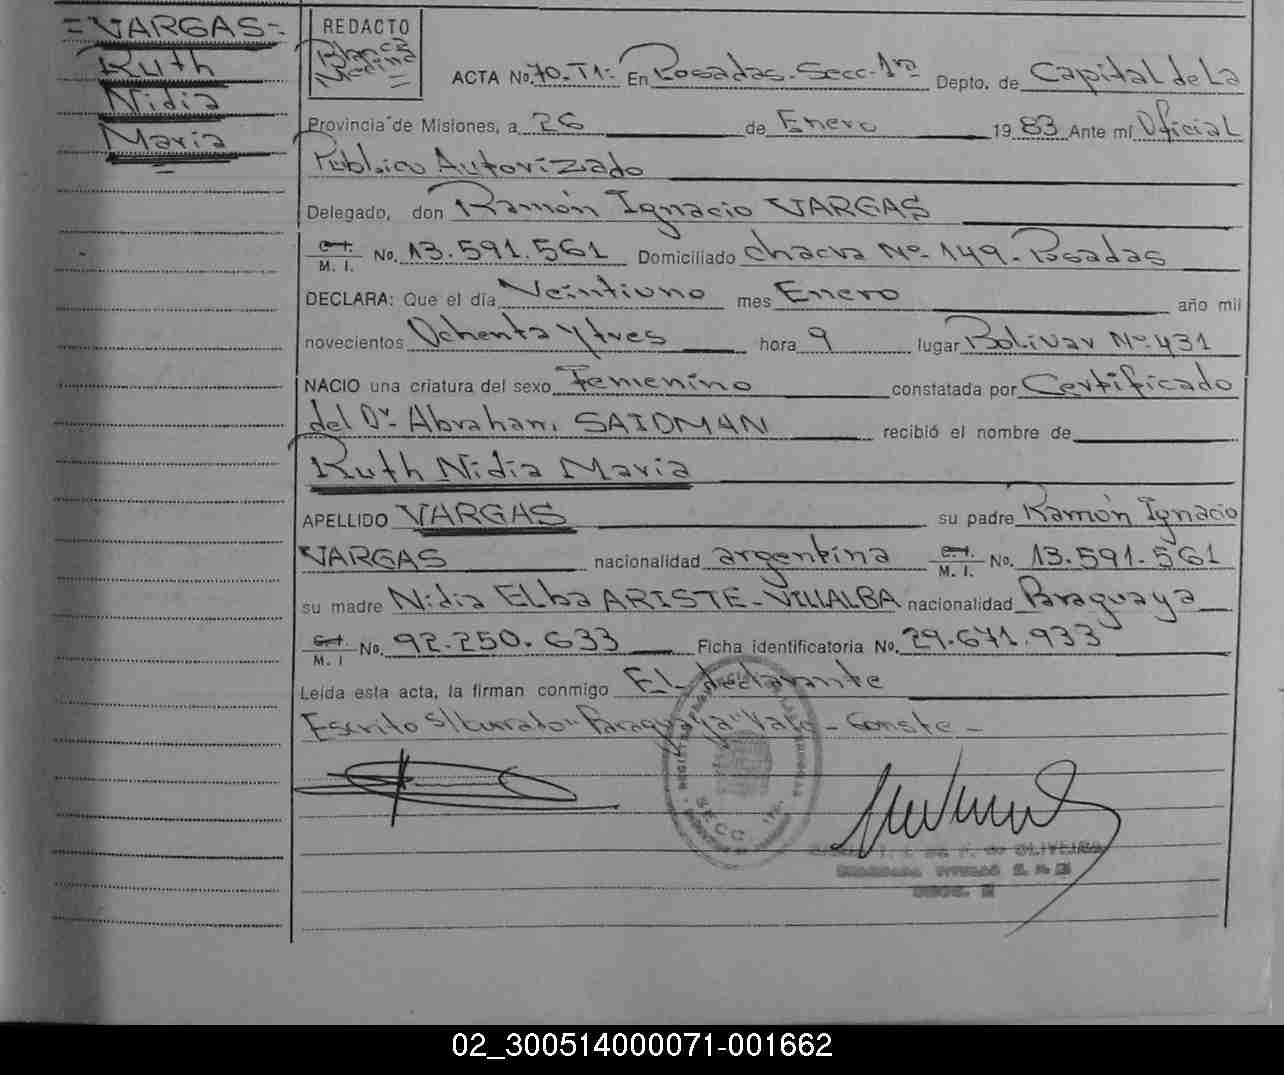 =VARGAS=
Ruth
Nidia
Maria
REDACTO
Blanca
Medina
ACTA No. 70-T1= En Posadas. Secc. 1ra Depto. de Capital de La
Provincia de Misiones, a 26 de Enero 1983 Ante mí Oficial
Público Autorizado
Delegado, don Ramón Ignacio VARGAS
M. I. No. 13.591.561 Domiciliado chacra Nº- 149- Posadas
DECLARA: Que el día Veintiuno mes Enero año mil
novecientos Ochenta y tres hora 9 lugar Bolivar Nº 431
NACIO una criatura del sexo Femenino constatada por Certificado
del Dr. Abraham SAIDMAN recibió el nombre de
Ruth Nidia Maria
APELLIDO VARGAS su padre Ramón Ignacio
VARGAS nacionalidad argentina C.I. M. I. No. 13.591.561
su madre Nidia Elba ARISTE-VILLALBA nacionalidad Paraguaya
M. I No. 92.250.633 Ficha identificatoria No. 29.671.933
Leída esta acta, la firman conmigo El declarante
Escrito s/ "Paraguaya" Vale - Conste -
SECC. 1ra.
DE OLIVEIRA
02_300514000071-001662